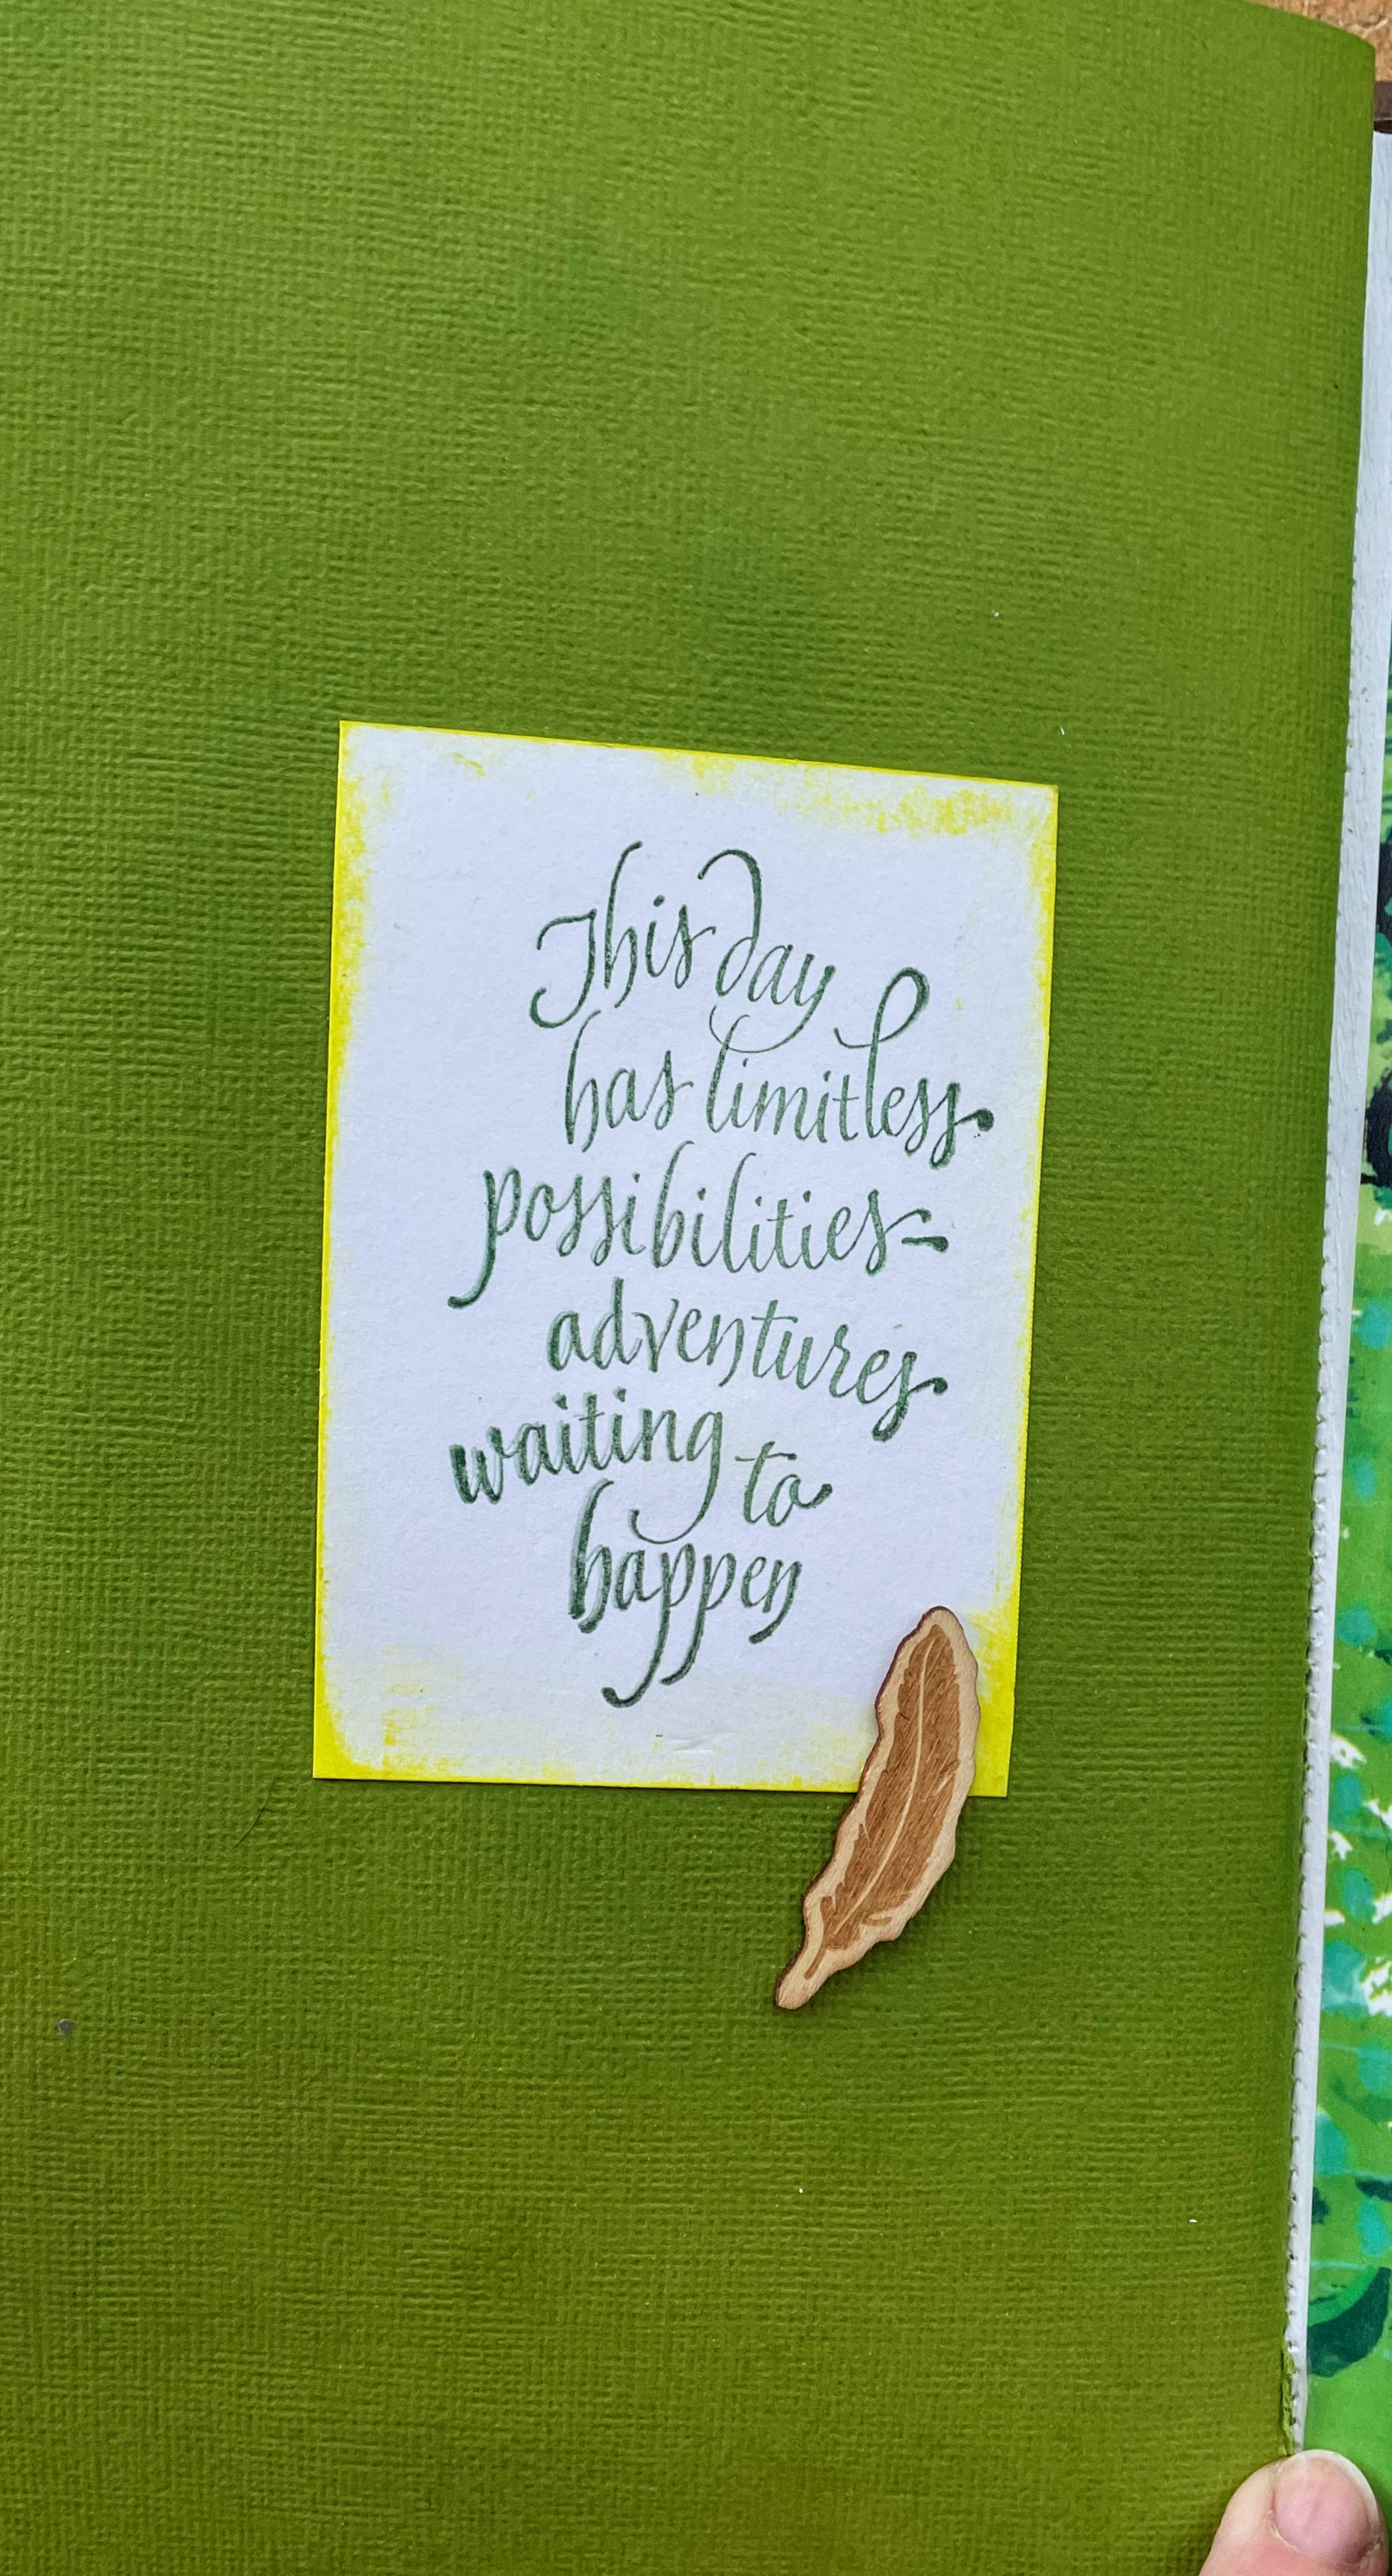 This day
has limitless
possibilities-
adventures
waiting to
happen